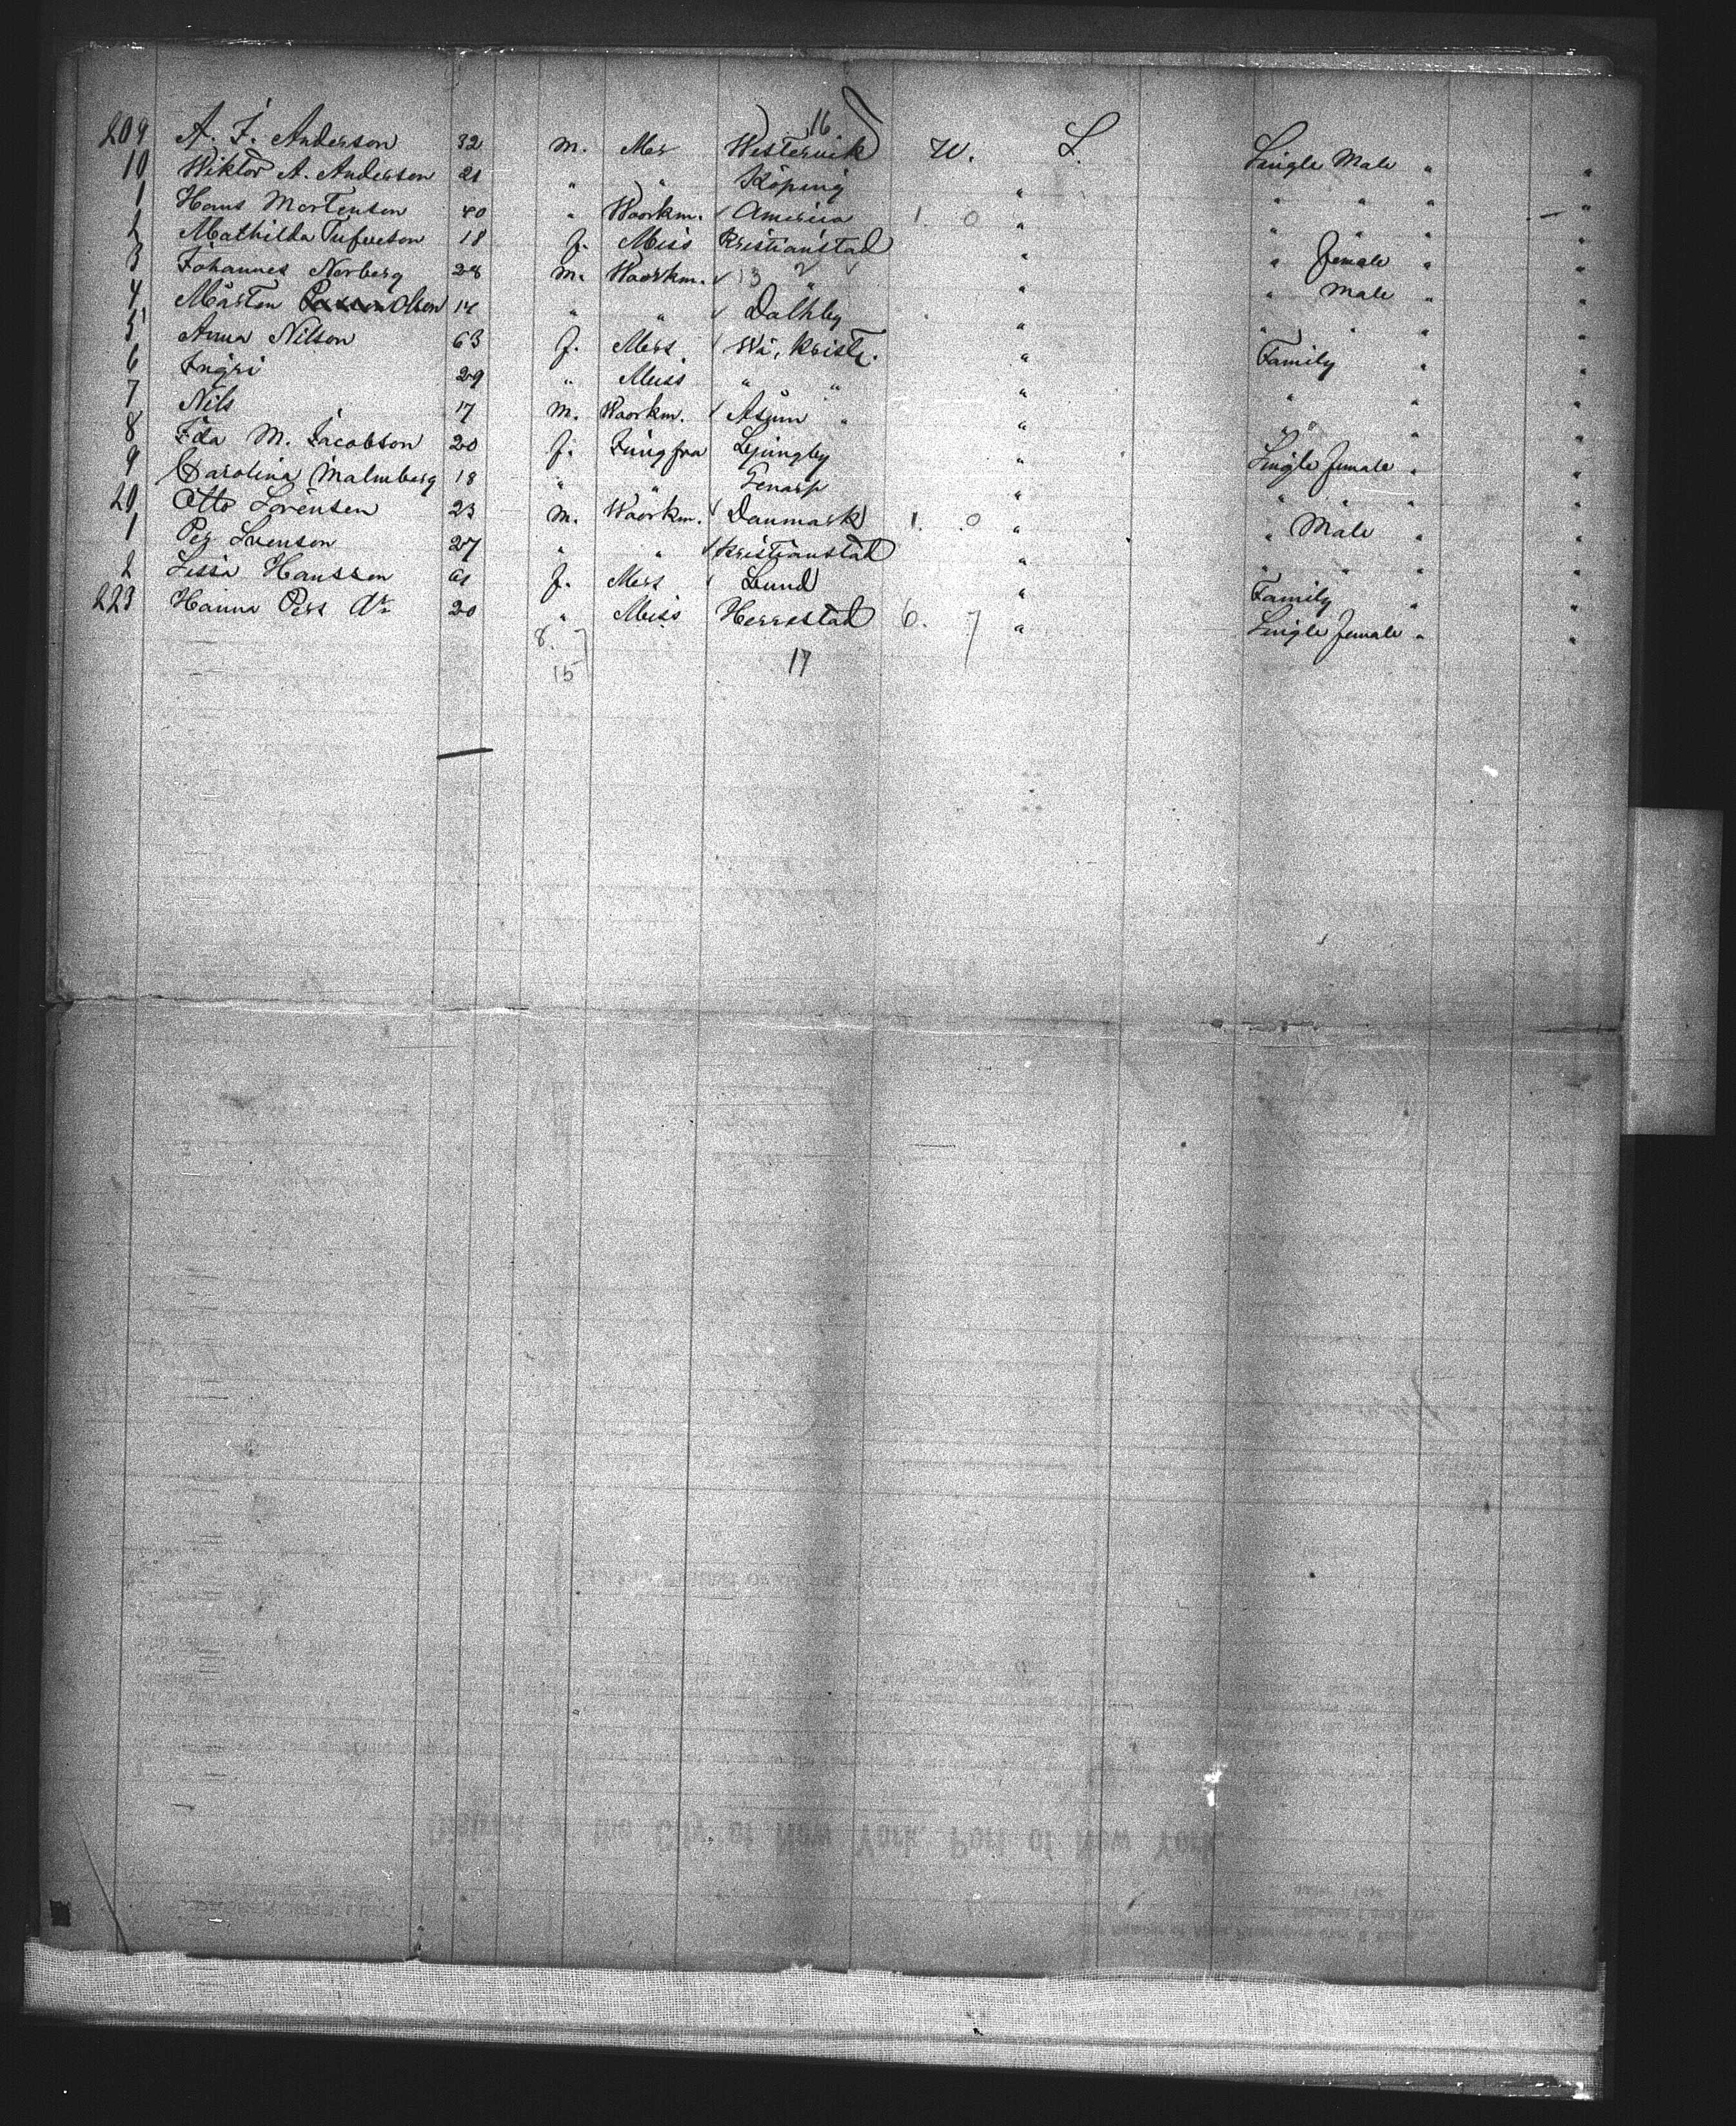 16
209 A. F. Anderson 32 m. Mer Westervik W. L. Single Male "
10 Wiktor A. Anderson 21 " " Köping " " " " "
1 Hans Mortenson 40 " Woorkm. America 1. 0 " " " " "
2 Mathilda Tufveson 18 f. Miss Kristianstad " " female " "
3 Johannes Norberg 28 m. Woorkm. 13 " " " Male " "
4 Mårten Olson 14 " " Dalhby " " " " "
5 Anna Nilson 63 f. Mers Wä, Kristi. " Family " "
6 Ingri 29 " Miss " " " " " "
7 Nils 17 m. Woorkm. Åsum " " " " "
8 Ida M. Jacobson 20 f. Jungfru Ljungby " Single female " "
9 Carolina Malmberg 18 " " Genarp " " " " "
20 Otto Sörensen 23 m. Woorkm. Danmark 1. 0 " " Male " "
1 Per Svenson 27 " " Kristianstad " " " " "
2 Sissa Hansson 61 f. Mers Lund " Family " "
223 Hanna Pers Dr 20 " Miss Herrestad 6. 7 " Single female " "
8. 7
15 17
District of the City of New York, Port of New York